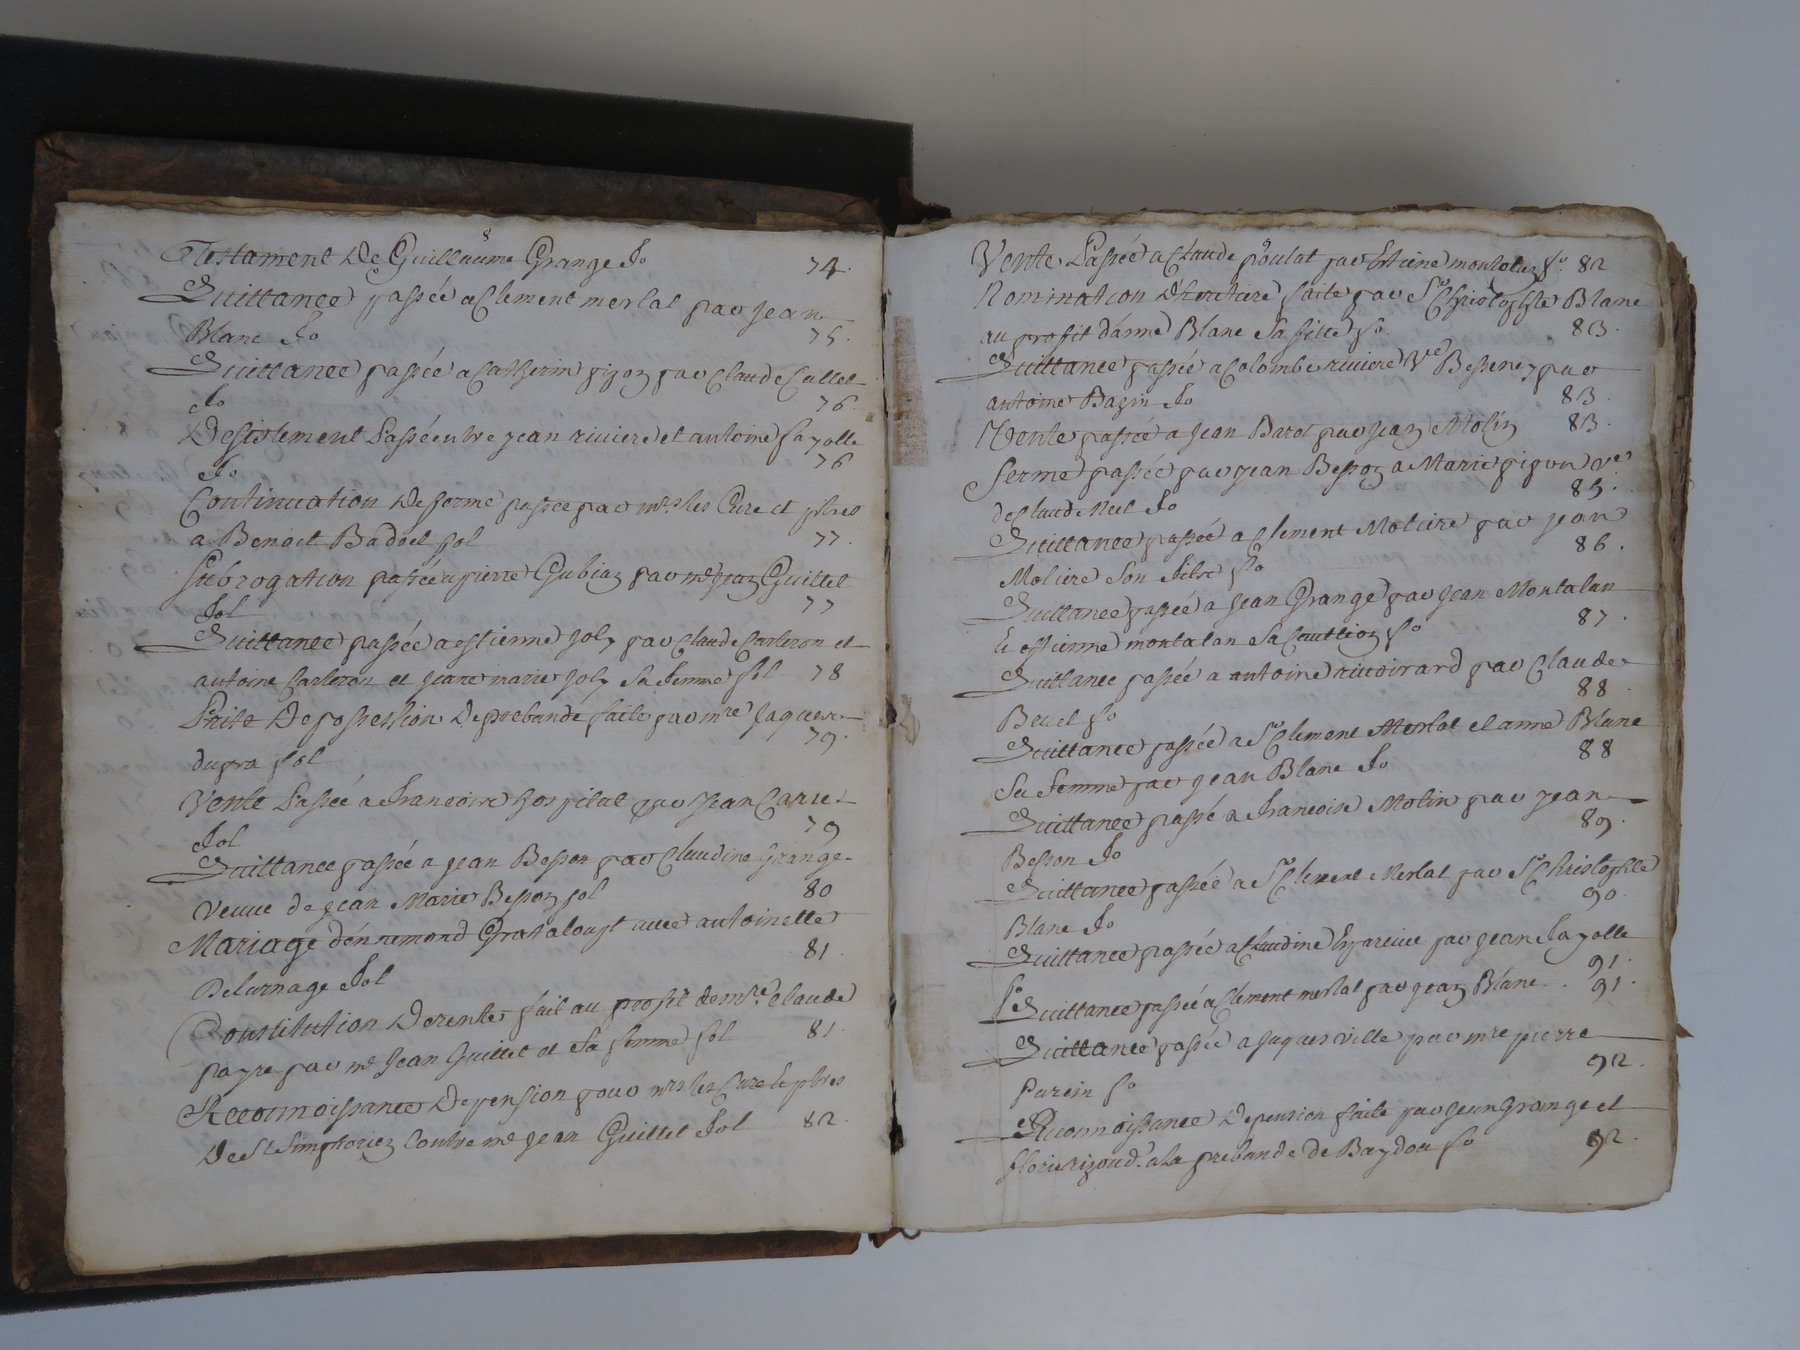 Testament de Guillaume Grange fo 74.
Quittance passée a Clement merlat par jean
Blanc fo 75.
Quittance passée a Catherin pizon par Claude Collet
fo 76.
Desistement Passé entre jean riviere et antoine fayolle
fo 76
Continuation de ferme passée par mrs les Cure et pbres
a Benoit Badoil fol 77.
Subrogation passée a pierre Gubian par me jean Guillet
fol 77
Quittance passée a estienne joly par Claude Carteron et
antoine Carteron et jeane marie joly Sa femme fol 78
Prise de possession de prebande faite par mre jaques
dupra fol 79.
Vente Passée a francoise hospital par jean Carue
fol 79
Quittance passée a jean Besson par Claudine Grange
veuve de jean Marie Besson fol 80
Mariage d'ennemond Grataloupt avec antoinette
Delurnage fol 81.
Constitution de rente fait au profit de mre Claude
payre par me jean Guillet et Sa femme fol 81.
Reconnoissance de pension pour mrs les Cure et pbres
de St Simphorien Contre me jean Guillet fol 82.
Vente Passée a Claude poulat par Etiene fo. 82
Nomination D'heritiere faite par Sr Christophle Blanc
au profit d'anne Blanc Sa fille fo 83.
Quittance passée a Colombe riviere Ve Bessenay par
antoine Bazin fo 83.
Vente passée a jean Barot par jean Molin 83.
ferme passée par jean Besson a Marie pipon ve
de Claude Neel fo 85.
Quittance passée a Clement Moliere par jean
Moliere Son fils fo 86.
Quittance passée a jean Grange par jean Montalan
Et estienne montalan Sa Caution fo 87.
Quittance passée a antoine rivoirard par Claude
Benel fo 88.
Quittance passée a Sr Clement Merlat et anne Blanc
Sa femme par jean Blanc fo 88
Quittance passé a francois Molin par jean
Besson fo 89.
Quittance passée a Sr Clement Merlat par Sr Christophle
Blanc fo 90.
Quittance passée a Claudine par jean fayolle
fo 91.
Quittance passée a Clement merlat par jean Blanc. 91.
Quittance passée a jaques ville par mre pierre
Parein fo 92.
Reconnoissance de pension faite par jean Grange et
florie rizoud. a la prebande de Baydon fo 92.